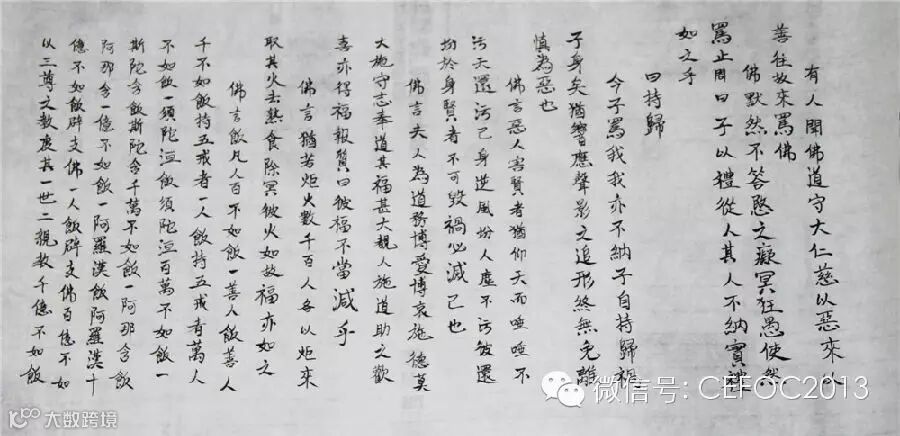 有人聞佛道守大仁慈以惡來以
善往故來罵佛
佛默然不答愍之癡冥狂愚使然
罵止問曰子以禮從人其人不納實禮
如之乎
曰持歸
今子罵我我亦不納子自持歸禍
子身矣猶響應聲影之追形終無免離
慎為惡也
佛言惡人害賢者猶仰天而唾唾不
污天還污己身逆風坋人塵不污彼還
坋於身賢者不可毀禍必滅己也
佛言夫人為道務博愛博哀施德莫
大施守志奉道其福甚大覩人施道助之歡
喜亦得福報質曰彼福不當減乎
佛言猶若炬火數千百人各以炬來
取其火去熟食除冥彼火如故福亦如之
佛言飯凡人百不如飯一善人飯善人
千不如飯持五戒者一人飯持五戒者萬人
不如飯一須陀洹飯須陀洹百萬不如飯一
斯陀含飯斯陀含千萬不如飯一阿那含飯
阿那含一億不如飯一阿羅漢飯阿羅漢十
億不如飯辟支佛一人飯辟支佛百億不如
以三尊之教度其一世二親教千億不如飯
微信号: CEFOC2013
大数跨境